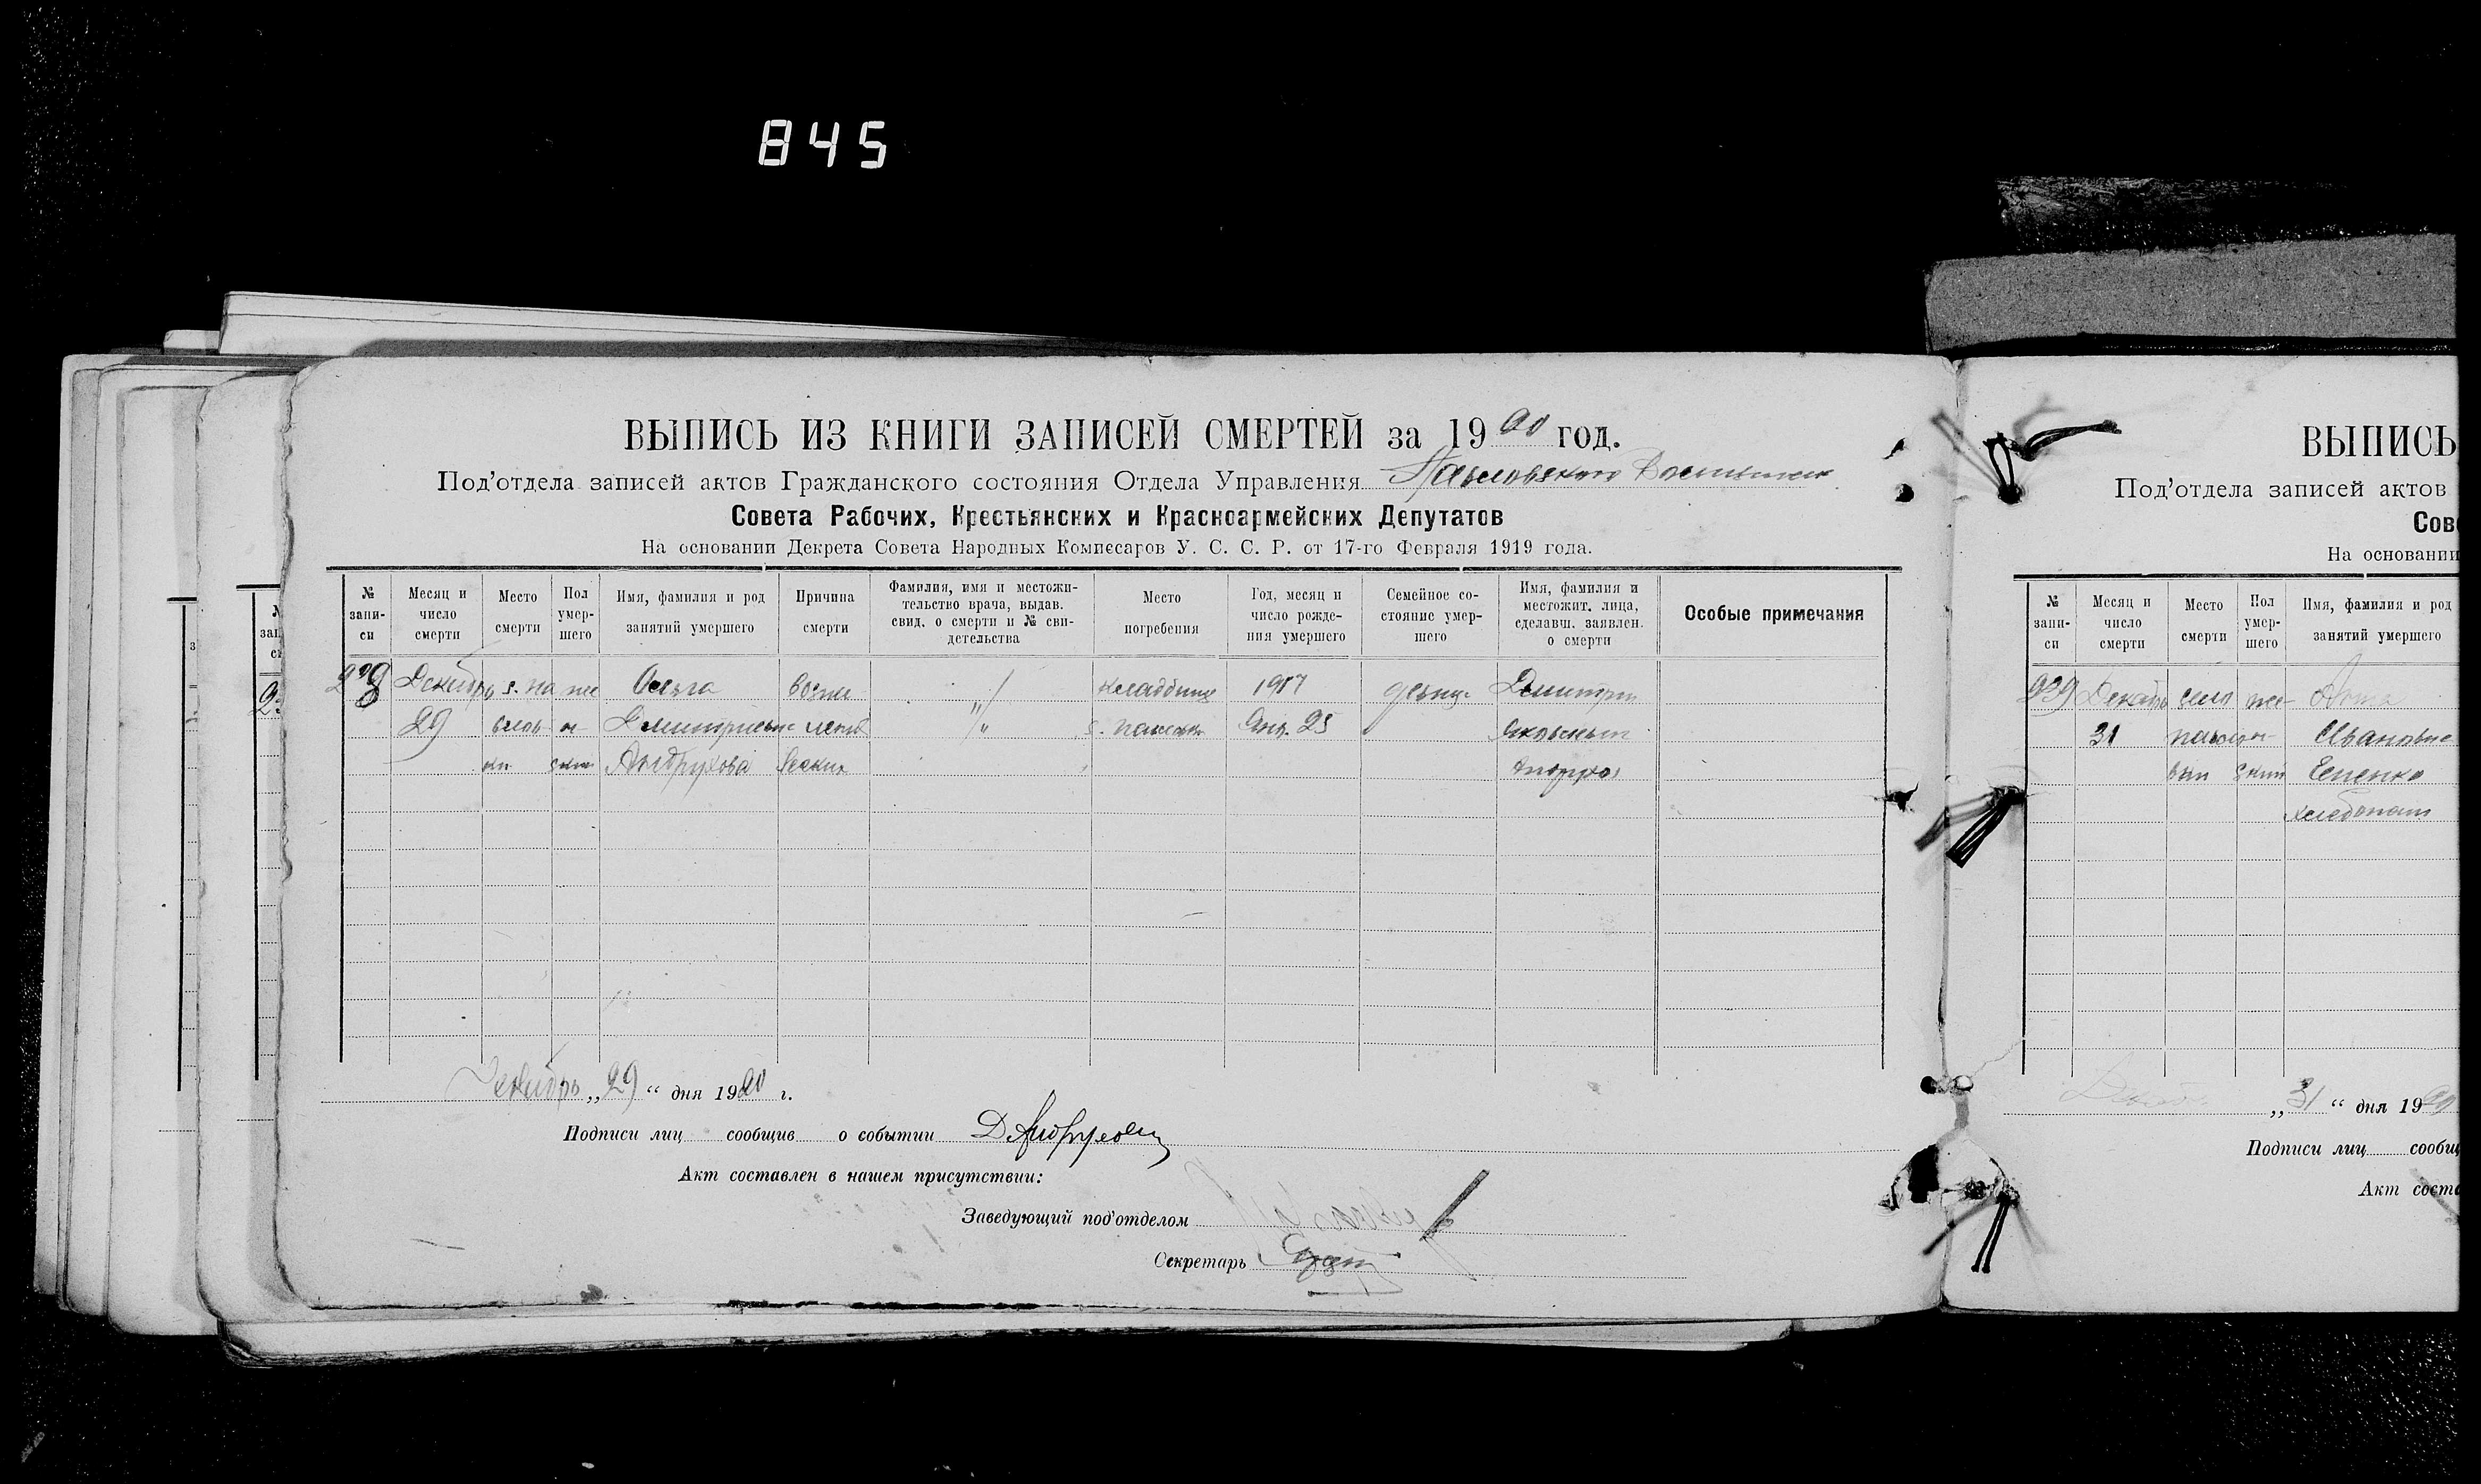 845
ВЫПИСЬ ИЗ КНИГИ ЗАПИСЕЙ СМЕРТЕЙ за 1920 год.
Под'отдела записей актов Гражданского состояния Отдела Управления
Совета Рабочих, Крестьянских и Красноармейских Депутатов
На основании Декрета Совета Народных Комиссаров У. С. С. Р. от 17-го Февраля 1919 года.
№ записи
Месяц и число смерти
Место смерти
Пол умершего
Имя, фамилия и род занятий умершего
Причина смерти
Фамилия, имя и местожительство врача, выдав. свид. о смерти и № свидетельства
Место погребения
Год, месяц и число рождения умершего
Семейное состояние умершего
Имя, фамилия и местожит. лица, сделавш. заявлен. о смерти
Особые примечания
238 Декабрь с. па же Ольга кладбище 1917 Дмитрий
29 н Дмитриевна Янв. 25
ский Андрухова
Декабрь „29“ дня 1920 г.
Подписи лиц сообщив о событии Д Андрухов
Акт составлен в нашем присутствии:
Заведующий под'отделом
Секретарь
ВЫПИСЬ
Под'отдела записей актов
Сов
На основании
№ записи
Месяц и число смерти
Место смерти
Пол умершего
Имя, фамилия и род занятий умершего
239 Декабрь село же
31 павлов н Ивановна
ский
хлебопаш
„31“ дня 1920
Подписи лиц сообщ
Акт соста